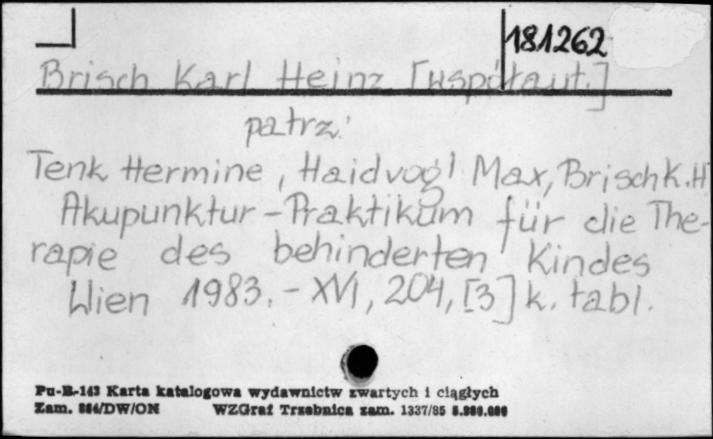 181262
Brisch Karl Heinz [współaut.]
patrz:
Tenk Hermine, Haidvogl Max, Brisch K.H
Akupunktur - Praktikum für die The-
rapie des behinderten Kindes
Wien 1983. - XVI, 204, [3] k. tabl.
Pu-B-143 Karta katalogowa wydawnictw zwartych i ciągłych
Zam. 864/DW/ON WZGraf Trzebnica zam. 1337/85